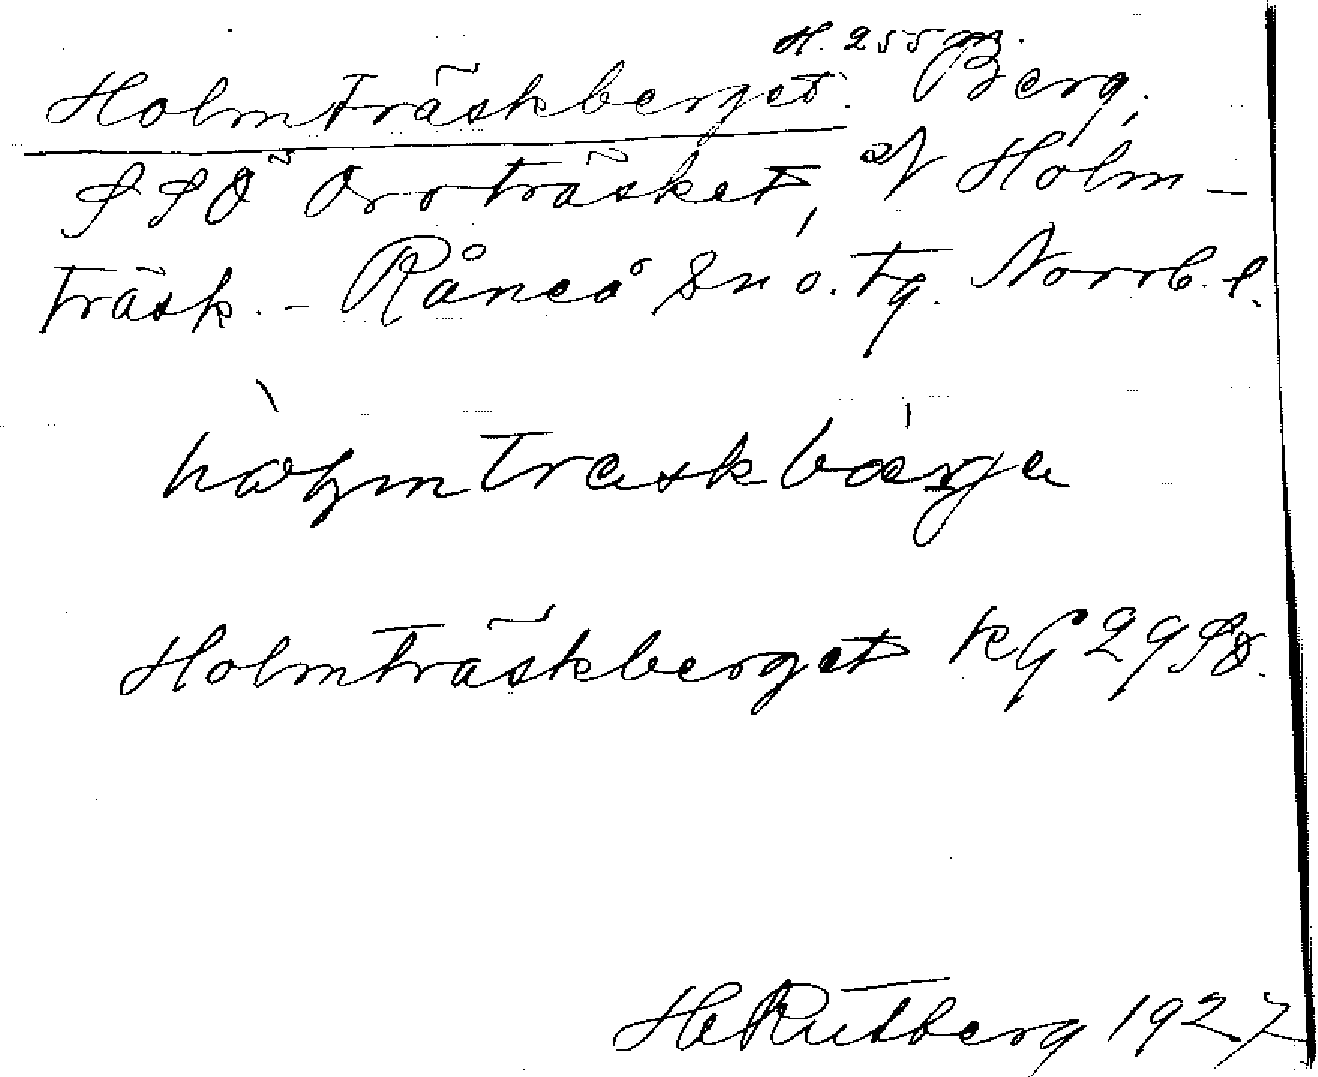 H. 255 m.
Holmträskberget. Berg,
SSO Orrträsket, N Holm-
träsk. - Råneå sn o. tg. Norrb. l.
hòlmtraskbærje
Holmträskberget KG 29 SO.
HRutberg 1927